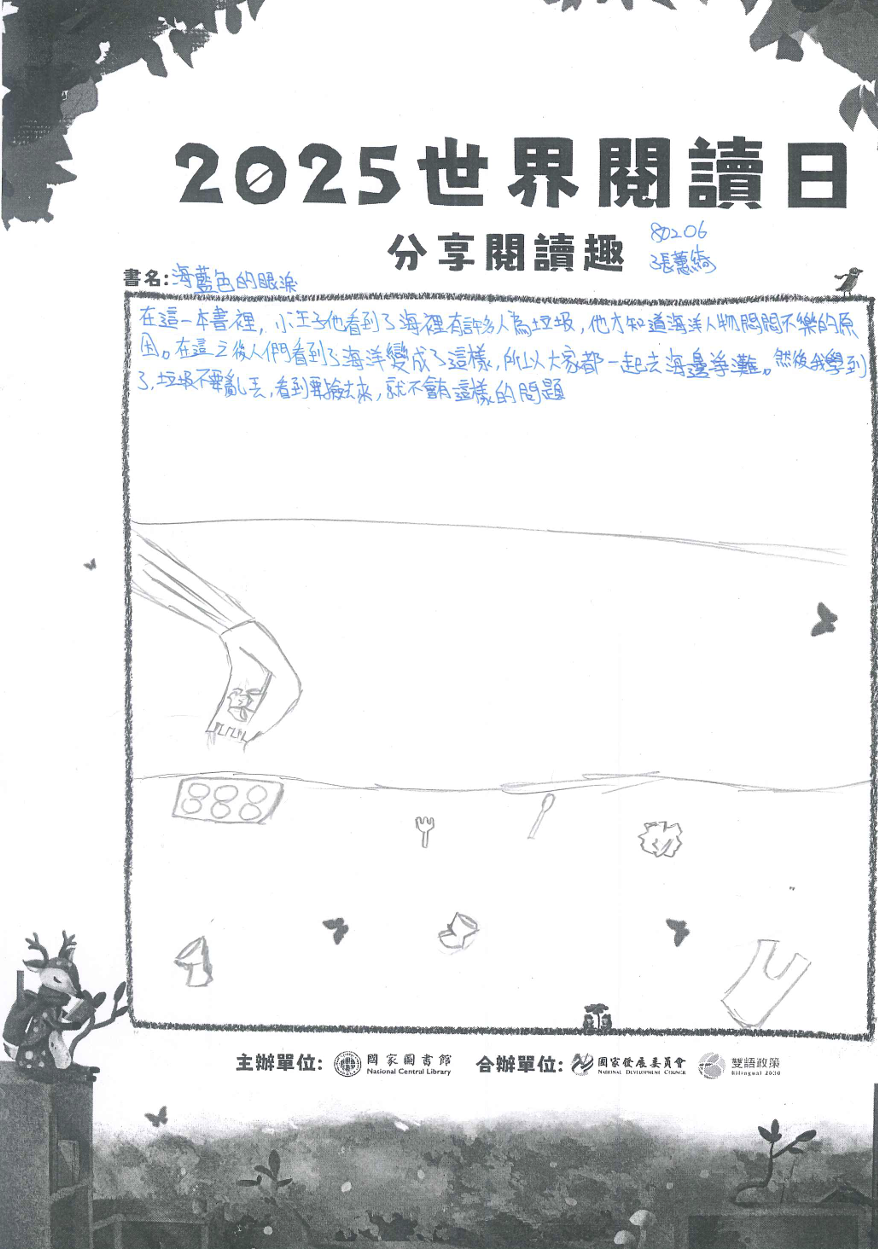 2025世界閱讀日
分享閱讀趣
80206
張蕙綺
書名:海藍色的眼淚
在這一本書裡，小王子他看到了海裡有許多人為垃圾，他才知道海洋人物悶悶不樂的原
因。在這之後人們看到了海洋變成了這樣，所以大家都一起去海邊淨灘。然後我學到
了，垃圾不要亂丟，看到要撿起來，就不會有這樣的問題
主辦單位: 國家圖書館 National Central Library 合辦單位: 國家發展委員會 National Development Council 雙語政策 Bilingual 2030